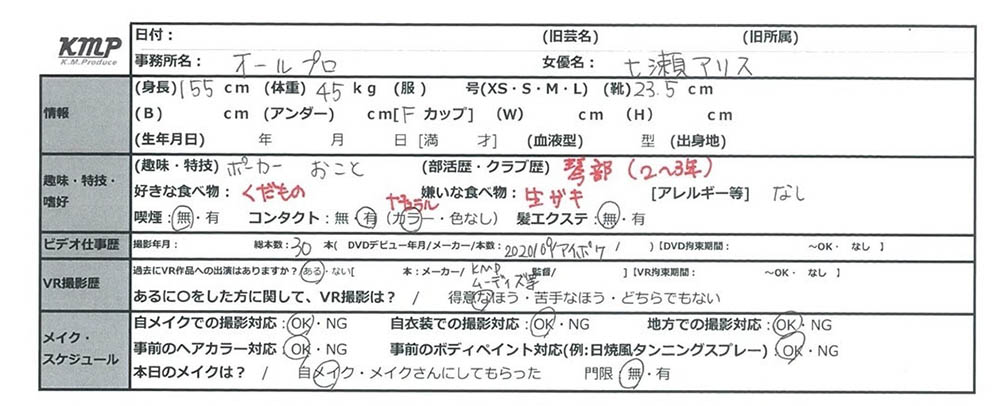 日付： (旧芸名) (旧所属)
KMP K.M.Produce
事務所名： オールプロ 女優名： 七瀬アリス
情報
(身長)155cm (体重)45kg (服 )号(XS・S・M・L) (靴)23.5cm
(B) cm (アンダー) cm[Fカップ] (W) cm (H) cm
(生年月日) 年 月 日 [満 才] (血液型) 型 (出身地)
趣味・特技・嗜好
(趣味・特技) ポーカー おこと (部活歴・クラブ歴) 琴部(2〜3年)
好きな食べ物： くだもの 嫌いな食べ物： 生ガキ [アレルギー等] なし
喫煙：無・有 コンタクト：無・有 (カラー・色なし) ナチュラル 髪エクステ：無・有
ビデオ仕事歴 撮影年月： 総本数：30 本( DVDデビュー年月/メーカー/本数：2020109/アイポケ / )【DVD拘束期間： 〜OK・ なし 】
VR撮影歴
過去にVR作品への出演はありますか？ある・ない[ 本：メーカー/ KMP ムーディズ 監督/ ]【VR拘束期間： 〜OK・ なし 】
あるに○をした方に関して、VR撮影は？ / 得意なほう・苦手なほう・どちらでもない
メイク・スケジュール
自メイクでの撮影対応：OK・NG 自衣装での撮影対応：OK・NG 地方での撮影対応：OK・NG
事前のヘアカラー対応：OK・NG 事前のボディペイント対応(例:日焼風タンニングスプレー)：OK・NG
本日のメイクは？ / 自メイク・メイクさんにしてもらった 門限：無・有